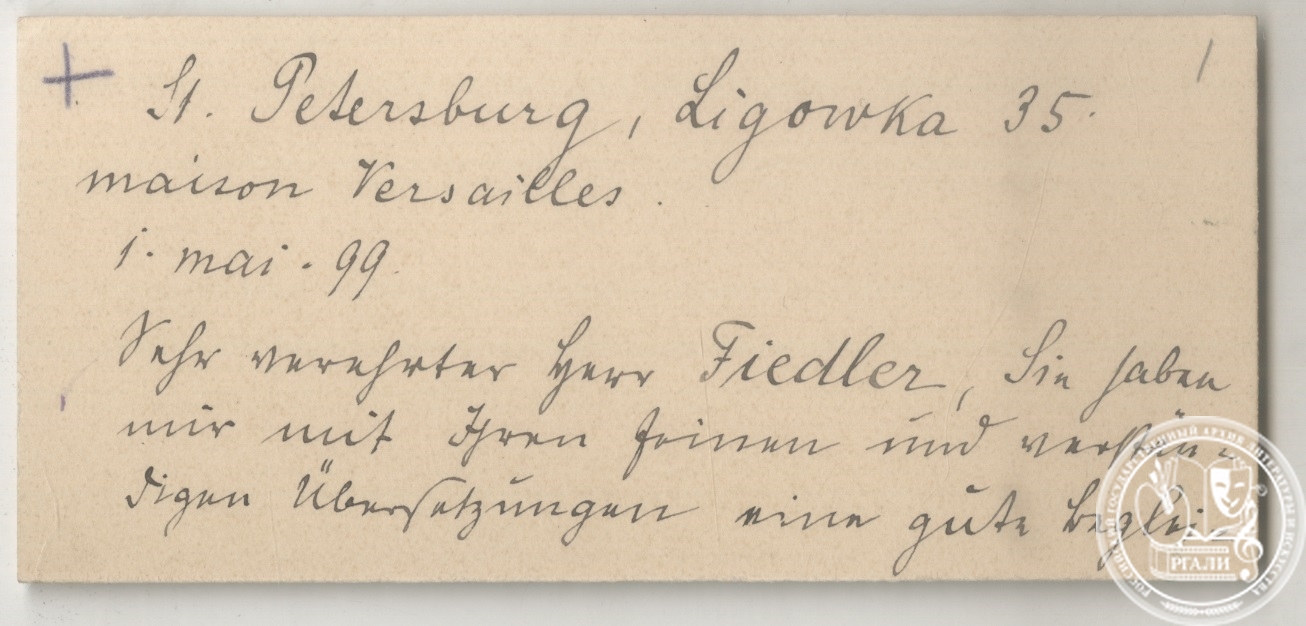 St. Petersburg, Ligowka 35.
maison Versailles.
1. mai. 99.
Sehr verehrter Herr Fiedler, Sie haben
mir mit Ihren feinen und verstän-
digen Übersetzungen eine gute Beglei-
РОССИЙСКИЙ ГОСУДАРСТВЕННЫЙ АРХИВ ЛИТЕРАТУРЫ И ИСКУССТВА
РГАЛИ